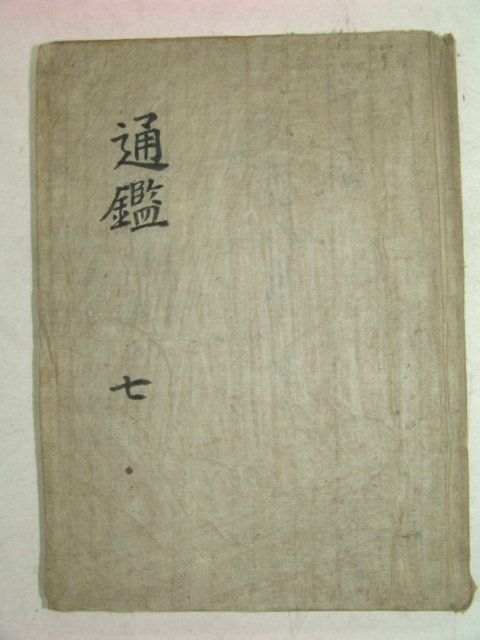 通鑑 七